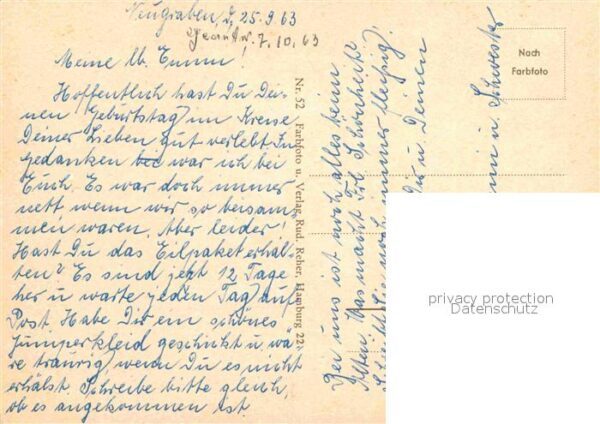 Neugraben, d, 25.9.63
Beantw. 7.10.63
Meine lb. Emmi!
Hoffentlich hast Du Dei-
nen Geburtstag im Kreise
Deiner Lieben gut verlebt. In
gedanken bei war ich bei
Euch. Es war doch immer
nett wenn wir so beisam-
men waren. Aber leider!
Hast Du das Eilpaket erhal-
ten? Es sind jetzt 12 Tage
her u warte jeden Tag auf
Post. Habe Dir ein schönes
Jumperkleid geschickt u wä-
re traurig, wenn Du es nicht
erhälst. Schreibe bitte gleich,
ob es angekommen ist.
Nr. 52 Farbfoto u. Verlag Rud. Reher, Hamburg 22
Bei uns ist noch alles beim
Alten. Was macht Frl. Schönheit?
Sie noch immer fleißig?
Dir u Deinen
u. Schwester
Nach
Farbfoto
privacy protection
Datenschutz